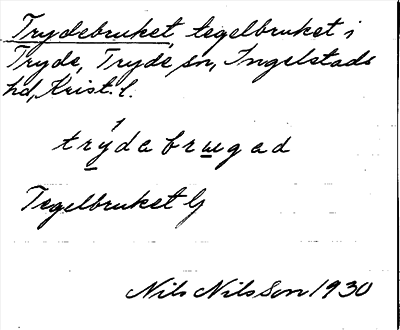 Trydebruket, tegelbruket i
Tryde, Tryde sn, Ingelstads
hd, Krist. l.
trydabrugad
Tegelbruket G
Nils Nilsson 1930